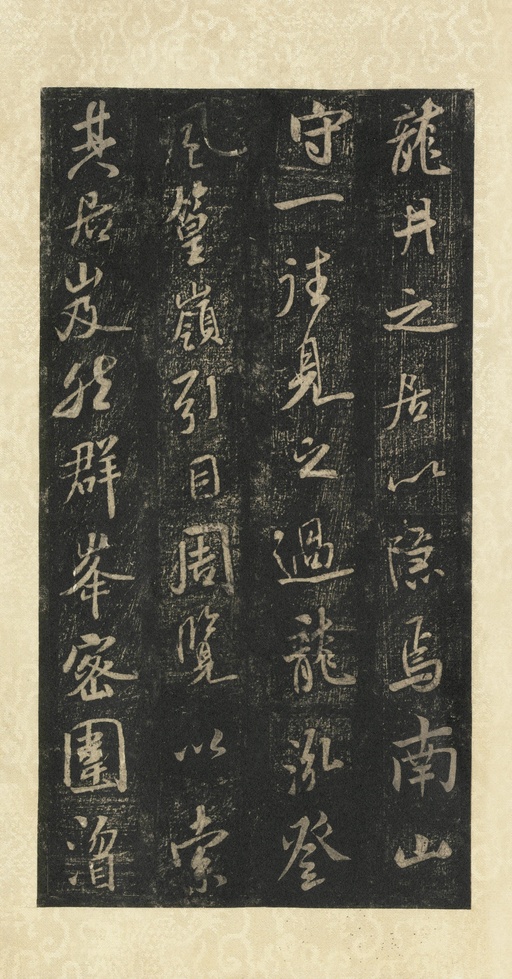 龍井之居以隱焉南山
守一往見之過龍泓登
風篁嶺引目周覽以索
其居岌然群峯密圍溜